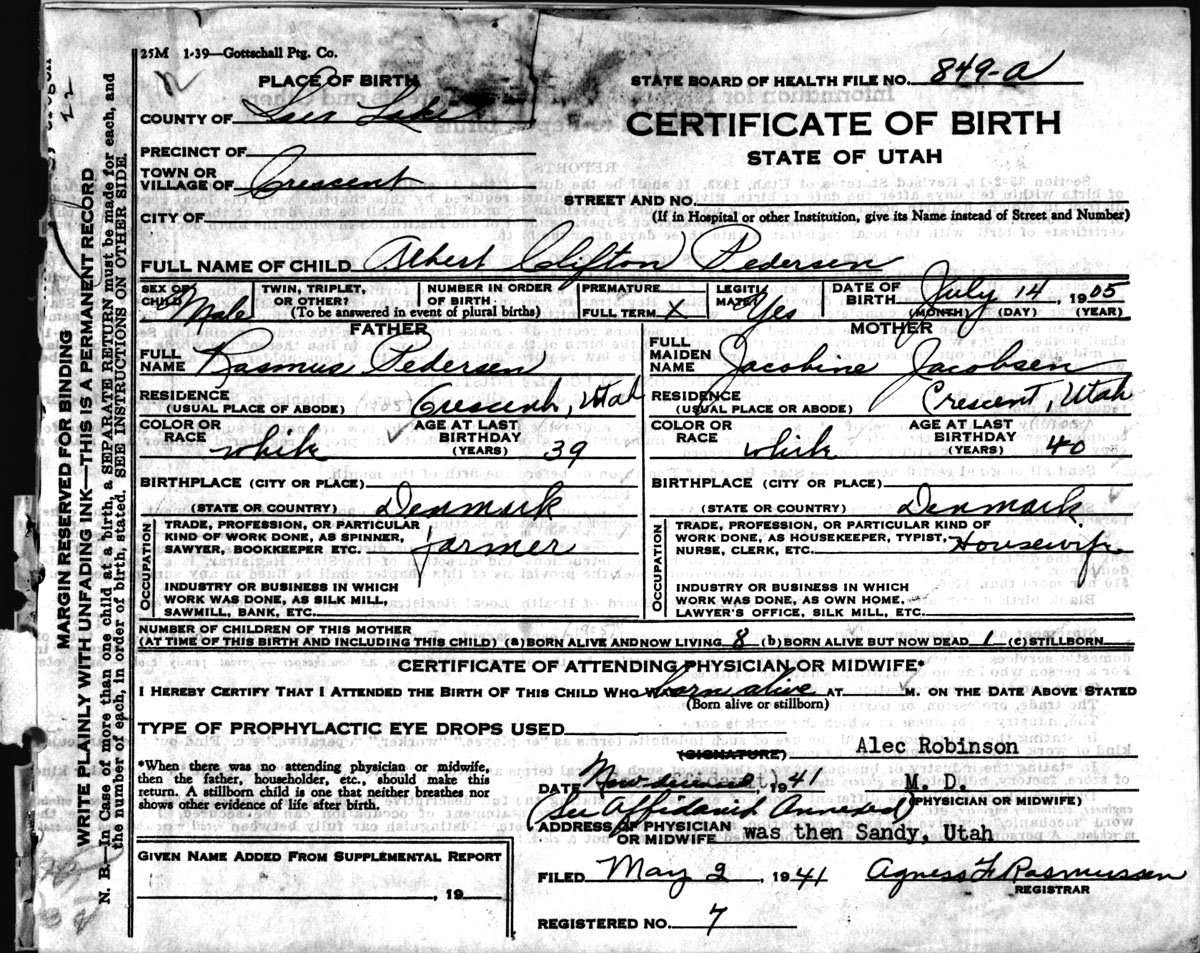 25M 1-39—Gottschall Ptg. Co.
PLACE OF BIRTH
STATE BOARD OF HEALTH FILE NO. 849-a
COUNTY OF Salt Lake
CERTIFICATE OF BIRTH
STATE OF UTAH
PRECINCT OF
TOWN OR VILLAGE OF Crescent
STREET AND NO.
(If in Hospital or other Institution, give its Name instead of Street and Number)
CITY OF
FULL NAME OF CHILD Albert Clifton Pedersen
SEX OF CHILD Male
TWIN, TRIPLET, OR OTHER?
NUMBER IN ORDER OF BIRTH
(To be answered in event of plural births)
PREMATURE
FULL TERM X
LEGITIMATE? Yes
DATE OF BIRTH July 14, 1905
(MONTH) (DAY) (YEAR)
FATHER
FULL NAME Rasmus Pedersen
RESIDENCE (USUAL PLACE OF ABODE) (1905) Crescent, Utah
COLOR OR RACE white
AGE AT LAST BIRTHDAY (YEARS) 39
BIRTHPLACE (CITY OR PLACE)
(STATE OR COUNTRY) Denmark
OCCUPATION
TRADE, PROFESSION, OR PARTICULAR
KIND OF WORK DONE, AS SPINNER,
SAWYER, BOOKKEEPER ETC. farmer
INDUSTRY OR BUSINESS IN WHICH
WORK WAS DONE, AS SILK MILL,
SAWMILL, BANK, ETC.
MOTHER
FULL MAIDEN NAME Jacobine Jacobsen
RESIDENCE (USUAL PLACE OR ABODE) Crescent, Utah
COLOR OR RACE white
AGE AT LAST BIRTHDAY (YEARS) 40
BIRTHPLACE (CITY OR PLACE)
(STATE OR COUNTRY) Denmark
OCCUPATION
TRADE, PROFESSION, OR PARTICULAR KIND OF
WORK DONE, AS HOUSEKEEPER, TYPIST,
NURSE, CLERK, ETC. Housewife
INDUSTRY OR BUSINESS IN WHICH
WORK WAS DONE, AS OWN HOME,
LAWYER'S OFFICE, SILK MILL, ETC.
NUMBER OF CHILDREN OF THIS MOTHER
(AT TIME OF THIS BIRTH AND INCLUDING THIS CHILD) (a) BORN ALIVE AND NOW LIVING 8 (b) BORN ALIVE BUT NOW DEAD 1 (c) STILLBORN
CERTIFICATE OF ATTENDING PHYSICIAN OR MIDWIFE*
I HEREBY CERTIFY THAT I ATTENDED THE BIRTH OF THIS CHILD WHO WAS born alive AT M. ON THE DATE ABOVE STATED
(Born alive or stillborn)
TYPE OF PROPHYLACTIC EYE DROPS USED
*When there was no attending physician or midwife,
then the father, householder, etc., should make this
return. A stillborn child is one that neither breathes nor
shows other evidence of life after birth.
(SIGNATURE) Alec Robinson
DATE Now deceased 1941 M. D.
(See Affidavit Annexed) (PHYSICIAN OR MIDWIFE)
ADDRESS OF PHYSICIAN OR MIDWIFE was then Sandy, Utah
GIVEN NAME ADDED FROM SUPPLEMENTAL REPORT
, 19
FILED May 2, 1941 Agness F Rasmussen
REGISTRAR
REGISTERED NO. 7
MARGIN RESERVED FOR BINDING
WRITE PLAINLY WITH UNFADING INK—THIS IS A PERMANENT RECORD
N. B.—In Case of more than one child at a birth, a SEPARATE RETURN must be made for each, and
the number of each, in order of birth, stated. SEE INSTRUCTIONS ON OTHER SIDE.